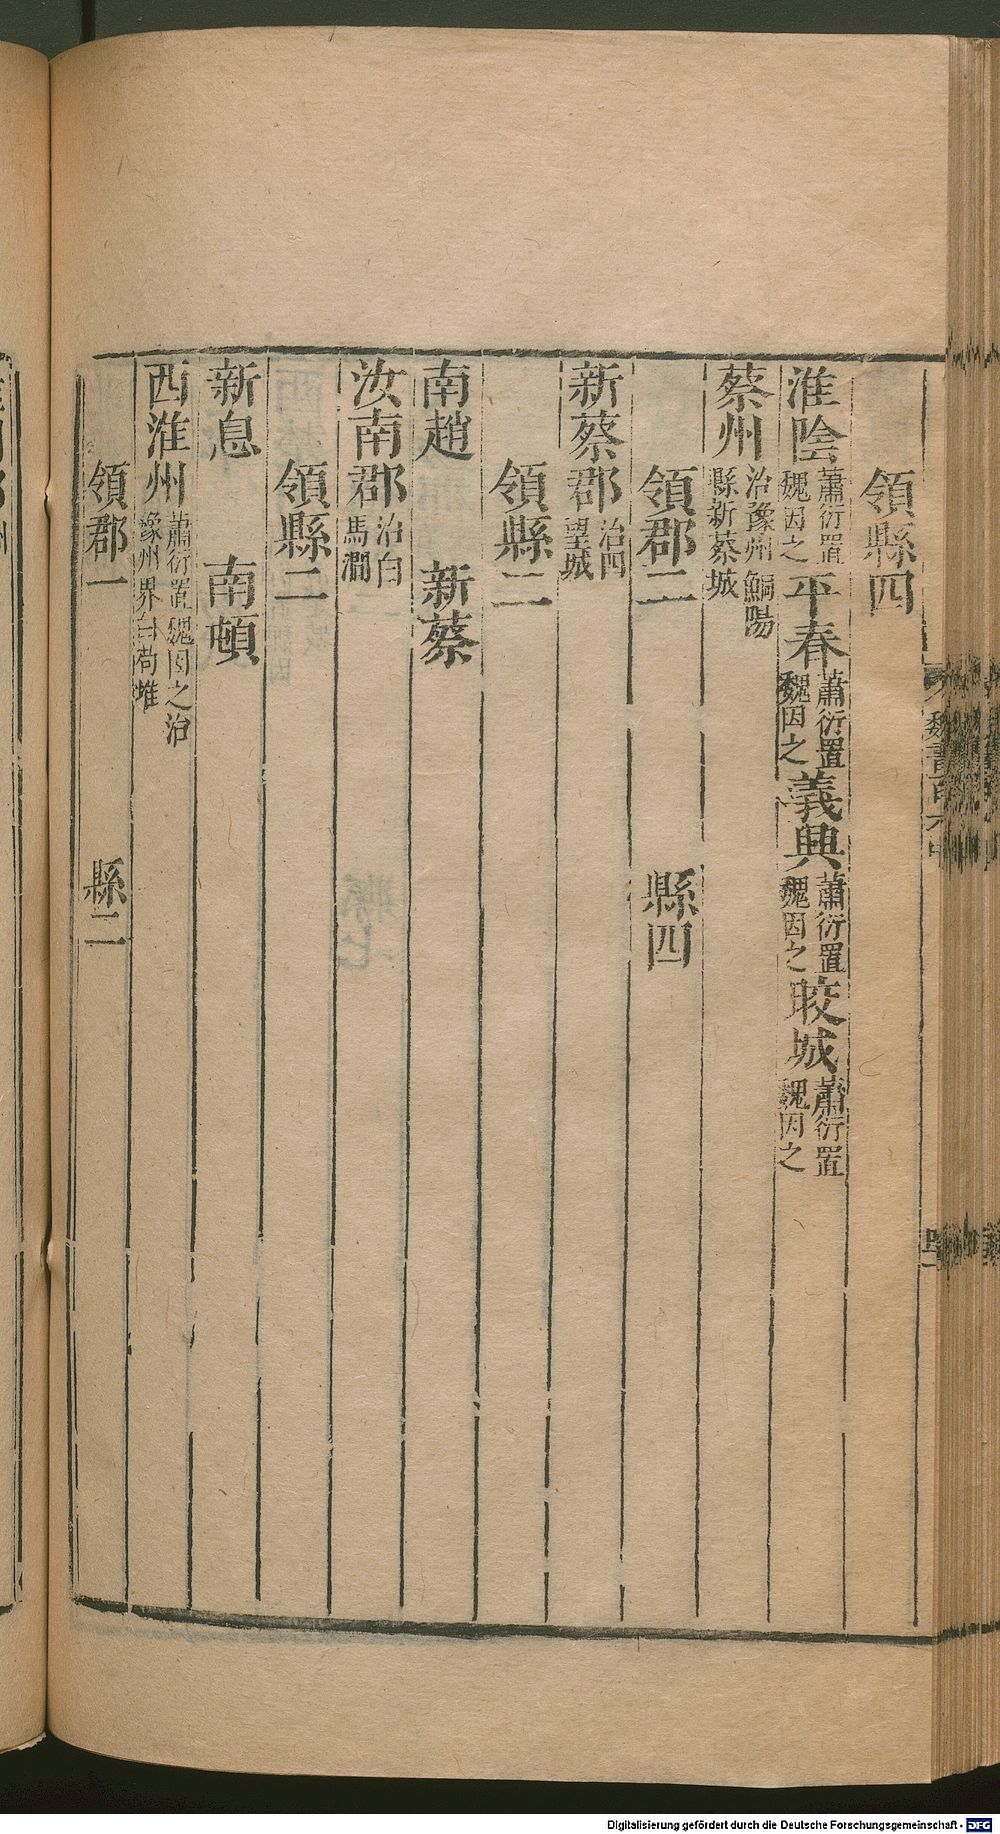 領縣四
淮陰 蕭衍置魏因之 平春 蕭衍置魏因之 義興 蕭衍置魏因之 晈城 蕭衍置魏因之
蔡州 治豫州鮦陽縣新蔡城
領郡二 縣四
新蔡郡 治四望城
領縣二
南趙 新蔡
汝南郡 治白馬澗
領縣二
新息 南頓
西淮州 蕭衍置魏因之治豫州界白苟堆
領郡一 縣二
魏書百六中
Digitalisierung gefördert durch die Deutsche Forschungsgemeinschaft - DFG